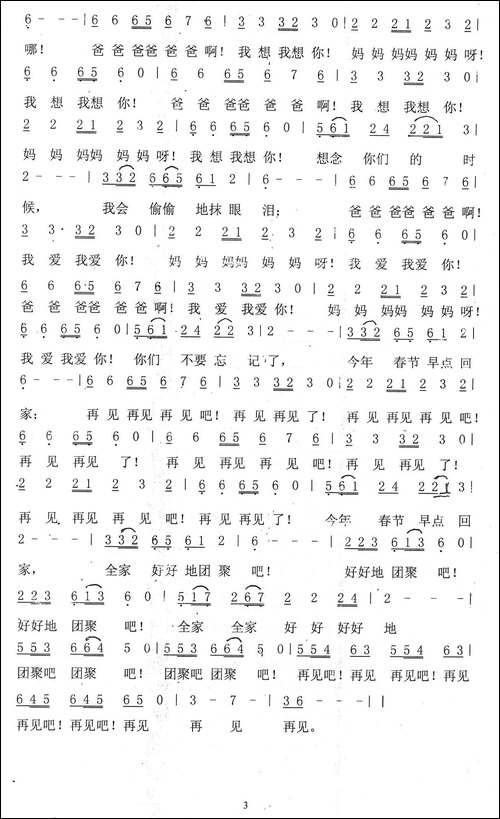 6 - - - | 6 6 65 6 7 6 | 3 3 32 3 0 | 2 2 21 2 3 2 |
哪! 爸 爸爸 爸爸 爸 啊! 我 想 我想 你! 妈 妈 妈妈 妈 妈 呀!
6 6 65 6 0 | 6 6 65 6 7 6 | 3 3 32 3 0 |
我 想 我想 你! 爸 爸 爸爸 爸 爸 啊! 我 想 我想 你!
2 2 21 2 3 2 | 6 6 65 6 0 | 561 24 221 3 |
妈 妈 妈妈 妈 妈 呀! 我 想 我想 你! 想念 你们 的 时
2 - - - | 332 665 61 2 | 6 - - - | 6 6 65 6 7 6 |
候, 我会 偷偷 地抹 眼 泪; 爸 爸 爸爸 爸 爸 啊!
3 3 32 3 0 | 2 2 21 2 3 2 | 6 6 65 6 0 |
我 爱 我爱 你! 妈 妈 妈妈 妈 妈 呀! 我 爱 我爱 你!
6 6 65 6 7 6 | 3 3 32 3 0 | 2 2 21 2 3 2 |
爸 爸 爸爸 爸 爸 啊! 我 爱 我爱 你! 妈 妈 妈妈 妈 妈 呀!
6 6 65 6 0 | 561 24 22 3 | 2 - - - | 332 665 61 2 |
我 爱 我爱 你! 你们 不要 忘 记 了, 今年 春节 早点 回
6 - - - | 6 6 65 6 7 6 | 3 3 32 3 0 | 2 2 21 2 3 2 |
家; 再 见 再见 再 见 吧! 再 见 再见 了! 再 见 再见 再 见 吧!
6 6 65 6 0 | 6 6 65 6 7 6 | 3 3 32 3 0 |
再 见 再见 了! 再 见 再见 再 见 吧! 再 见 再见 了!
2 2 21 2 3 2 | 6 6 65 6 0 | 561 24 221 3 |
再 见 再见 再 见 吧! 再 见 再见 了! 今年 春节 早点 回
2 - - - | 332 65 61 2 | 6 - - - | 223 613 6 0 |
家, 全家 好好 地团 聚 吧! 好好地 团聚 吧!
223 613 6 0 | 517 267 2 2 24 | 2 - - - |
好好地 团聚 吧! 全家 全家 好 好 好好 地
553 664 5 0 | 553 664 5 0 | 554 63 554 63 |
团聚吧 团聚 吧! 团聚吧 团聚 吧! 再见吧! 再见 再见吧! 再见
645 645 65 6 0 | 3 - 7 - | 36 - - - | |
再见吧! 再见吧! 再见 再 见 再见。
3